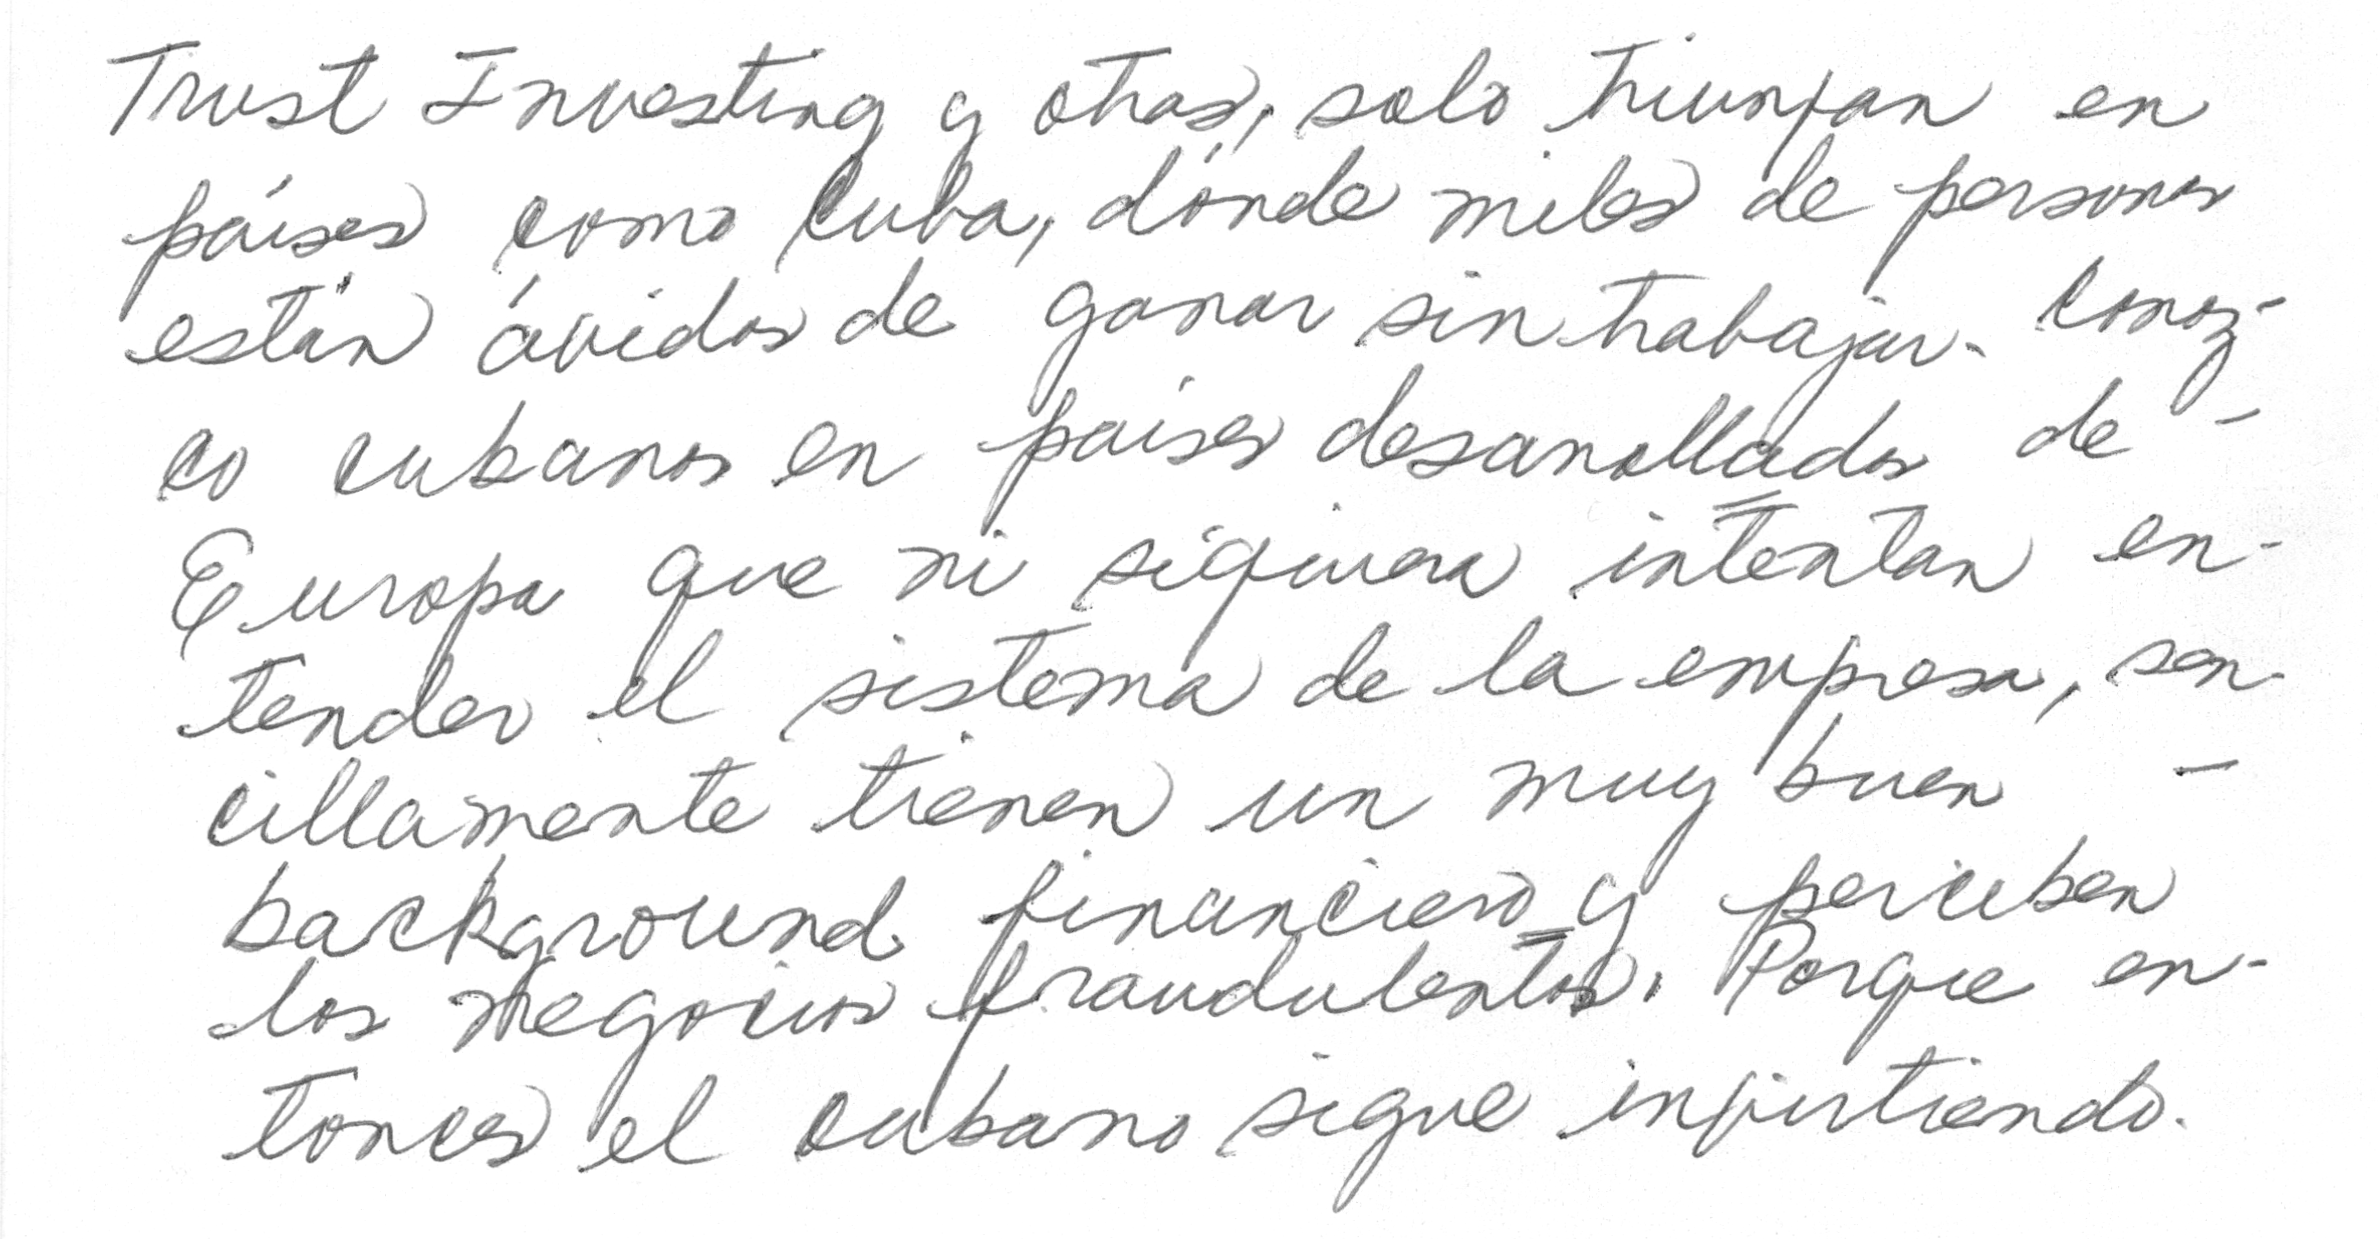 Trust Investing y otras, solo triunfan en
países como Cuba, dónde miles de personas
están ávidos de ganar sin trabajar. Conoz-
co cubanos en países desarrollados de -
Europa que ni siquiera intentan en-
tender el sistema de la empresa, sen-
cillamente tienen un muy buen -
background financiero y perciben
los negocios fraudulentos. Porque en-
tonces el cubano sigue invirtiendo.